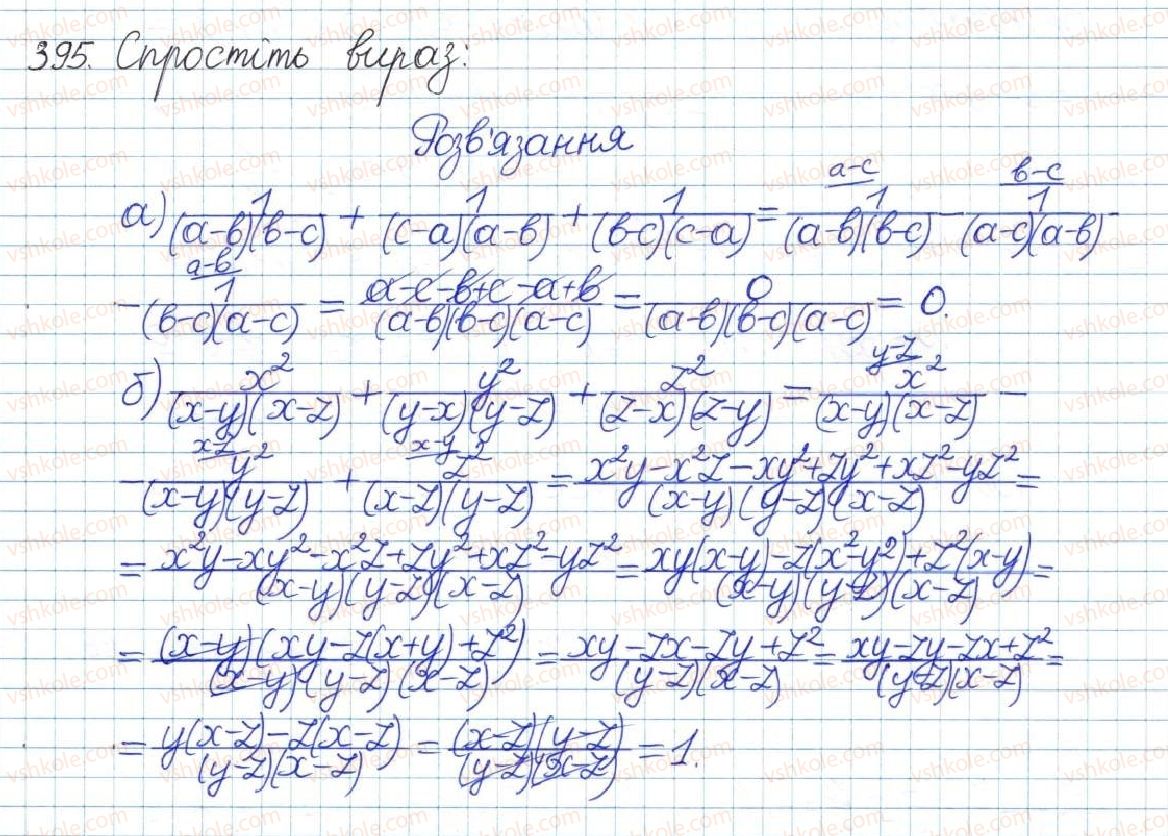 395. Спростіть вираз:
Розв'язання
а) 1/((a-b)(b-c)) + 1/((c-a)(a-b)) + 1/((b-c)(c-a)) = a-c/ 1/((a-b)(b-c)) - b-c/ 1/((a-c)(a-b)) -
- a-b/ 1/((b-c)(a-c)) = (a-c-b+c-a+b)/((a-b)(b-c)(a-c)) = 0/((a-b)(b-c)(a-c)) = 0.
б) x²/((x-y)(x-z)) + y²/((y-x)(y-z)) + z²/((z-x)(z-y)) = y-z/ x²/((x-y)(x-z)) -
- x-z/ y²/((x-y)(y-z)) + x-y/ z²/((x-z)(y-z)) = (x²y-x²z-xy²+zy²+xz²-yz²)/((x-y)(y-z)(x-z)) =
= (x²y-xy²-x²z+zy²+xz²-yz²)/((x-y)(y-z)(x-z)) = (xy(x-y)-z(x²-y²)+z²(x-y))/((x-y)(y-z)(x-z)) =
= ((x-y)(xy-z(x+y)+z²))/((x-y)(y-z)(x-z)) = (xy-zx-zy+z²)/((y-z)(x-z)) = (xy-zy-zx+z²)/((y-z)(x-z)) =
= (y(x-z)-z(x-z))/((y-z)(x-z)) = ((x-z)(y-z))/((y-z)(x-z)) = 1.
vshkole.com